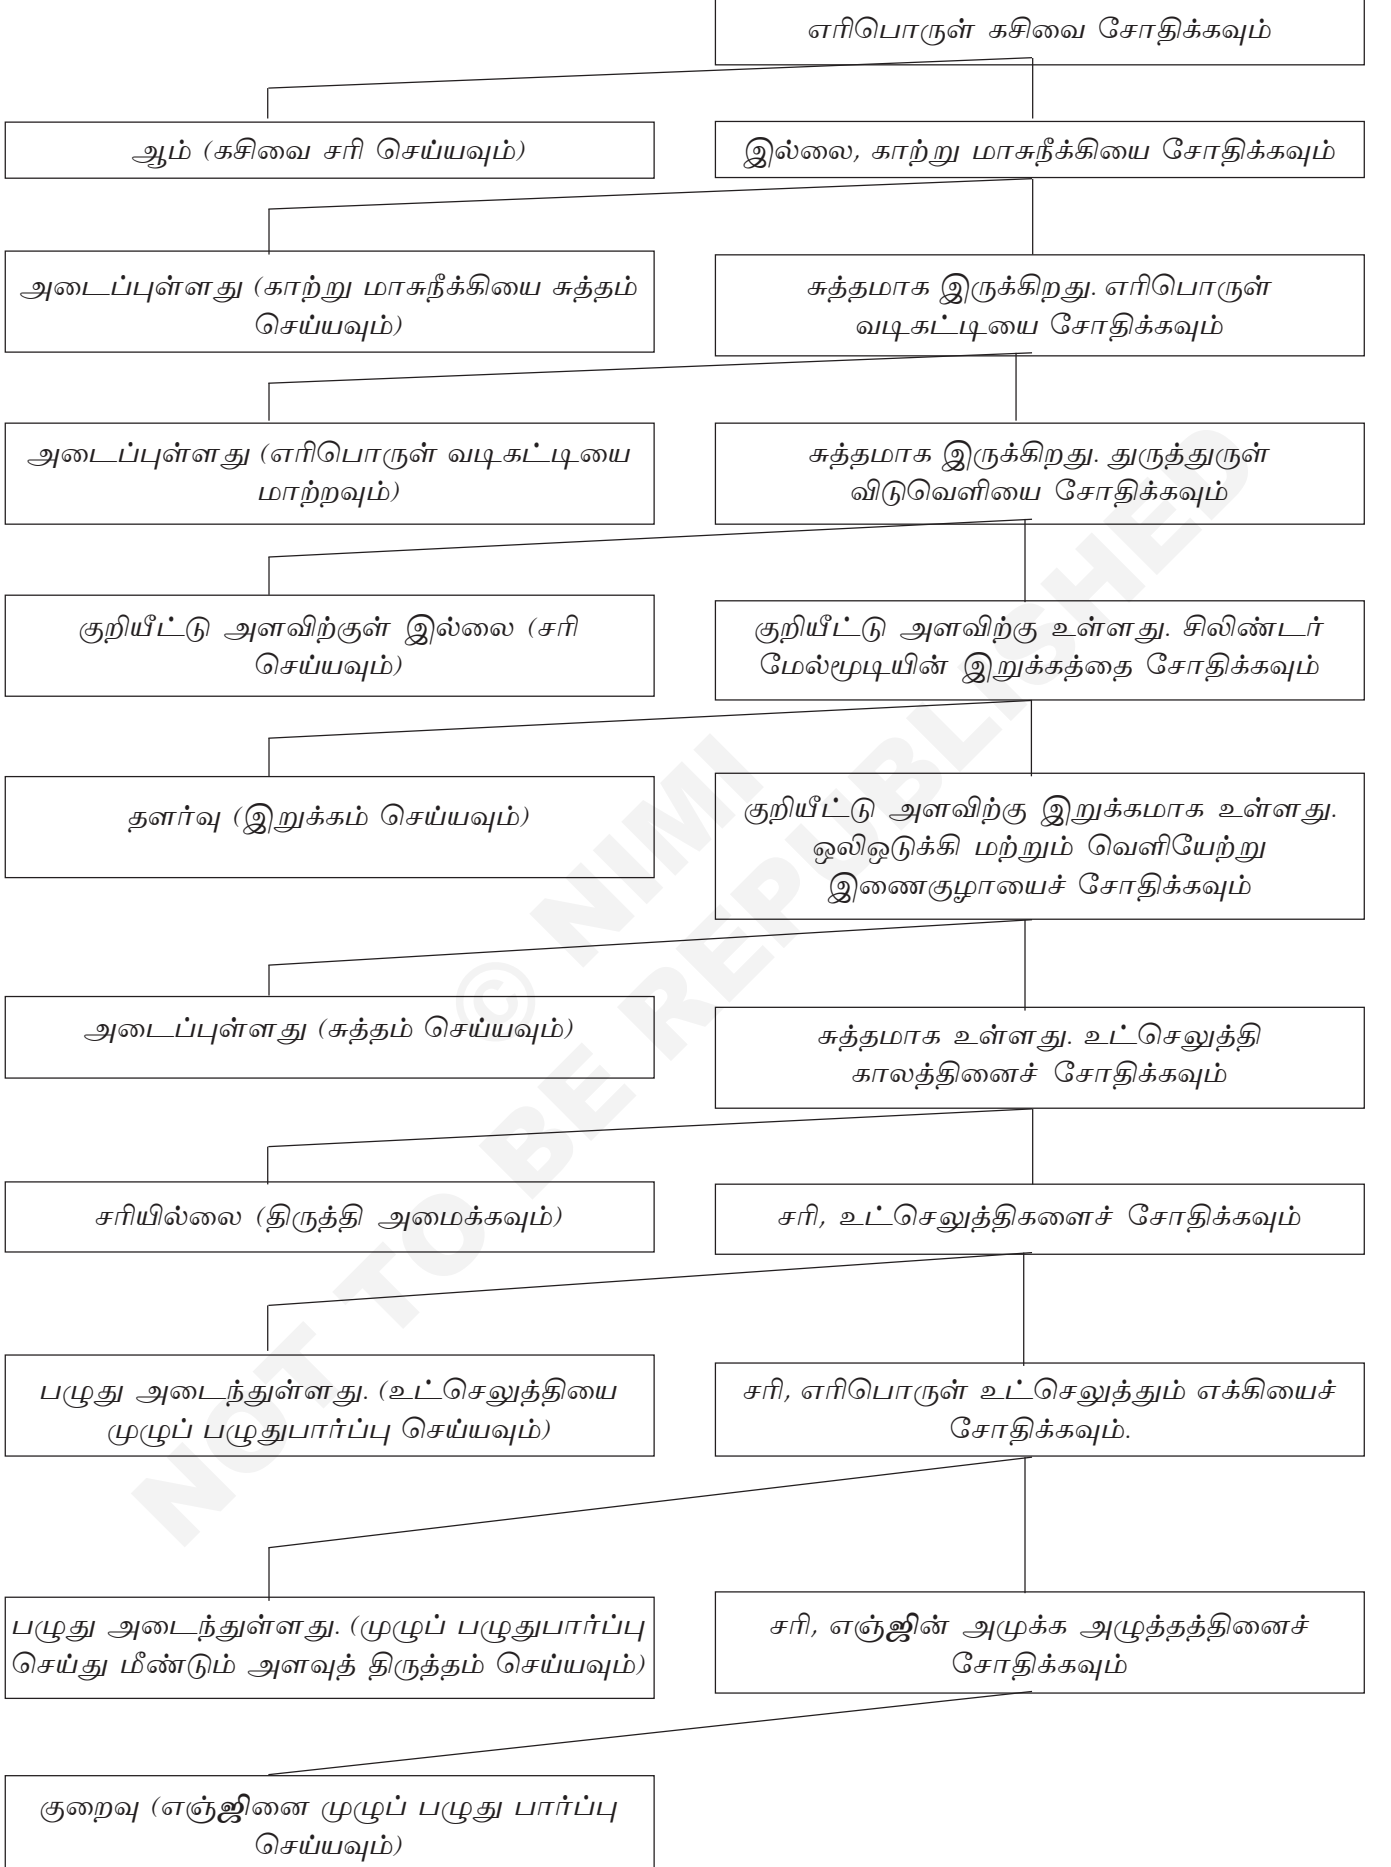 எரிபொருள் கசிவை சோதிக்கவும்
ஆம் (கசிவை சரி செய்யவும்)
இல்லை, காற்று மாசுநீக்கியை சோதிக்கவும்
அடைப்புள்ளது (காற்று மாசுநீக்கியை சுத்தம்
செய்யவும்)
சுத்தமாக இருக்கிறது. எரிபொருள்
வடிகட்டியை சோதிக்கவும்
அடைப்புள்ளது (எரிபொருள் வடிகட்டியை
மாற்றவும்)
சுத்தமாக இருக்கிறது. துருத்துருள்
விடுவெளியை சோதிக்கவும்
குறியீட்டு அளவிற்குள் இல்லை (சரி
செய்யவும்)
குறியீட்டு அளவிற்கு உள்ளது. சிலிண்டர்
மேல்மூடியின் இறுக்கத்தை சோதிக்கவும்
தளர்வு (இறுக்கம் செய்யவும்)
குறியீட்டு அளவிற்கு இறுக்கமாக உள்ளது.
ஒலிஒடுக்கி மற்றும் வெளியேற்று
இணைகுழாயைச் சோதிக்கவும்
அடைப்புள்ளது (சுத்தம் செய்யவும்)
சுத்தமாக உள்ளது. உட்செலுத்தி
காலத்தினைச் சோதிக்கவும்
சரியில்லை (திருத்தி அமைக்கவும்)
சரி, உட்செலுத்திகளைச் சோதிக்கவும்
பழுது அடைந்துள்ளது. (உட்செலுத்தியை
முழுப் பழுதுபார்ப்பு செய்யவும்)
சரி, எரிபொருள் உட்செலுத்தும் எக்கியைச்
சோதிக்கவும்.
பழுது அடைந்துள்ளது. (முழுப் பழுதுபார்ப்பு
செய்து மீண்டும் அளவுத் திருத்தம் செய்யவும்)
சரி, எஞ்ஜின் அமுக்க அழுத்தத்தினைச்
சோதிக்கவும்
குறைவு (எஞ்ஜினை முழுப் பழுது பார்ப்பு
செய்யவும்)
© NIMI
NOT TO BE REPUBLISHED